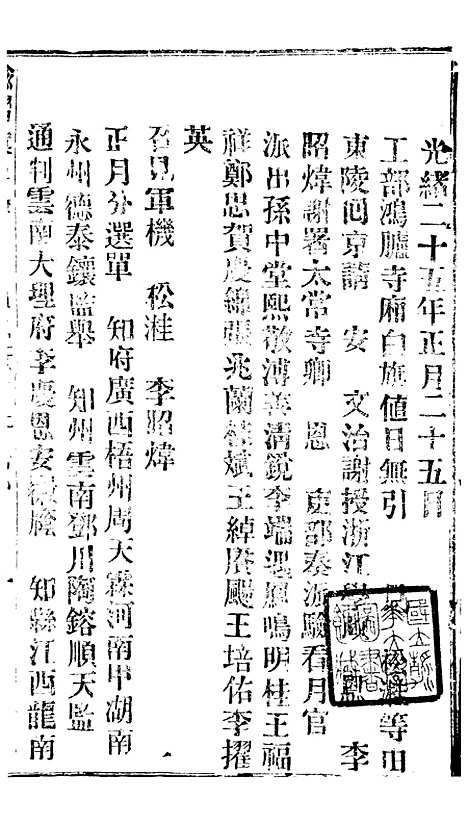 光緒二十五年正月二十五日
工部鴻臚寺廂白旗值日無引 松溎等由
東陵回京請 安 文治謝授浙江學 李
昭煒謝署太常寺卿 恩 吏部奏派驗看月官
派出孫中堂熙敬溥善清銳李端遇鳳鳴明桂王福
祥鄭思賀慶綿張兆蘭桂斌王綽詹颺王培佑李擢
英
召見軍機 松溎 李昭煒
正月分選單 知府廣西梧州周天霖河南甲湖南
永州德泰鑲監舉 知州雲南鄧川陶鎔順天監
通判雲南大理府李慶恩安徽廕 知縣江西龍南